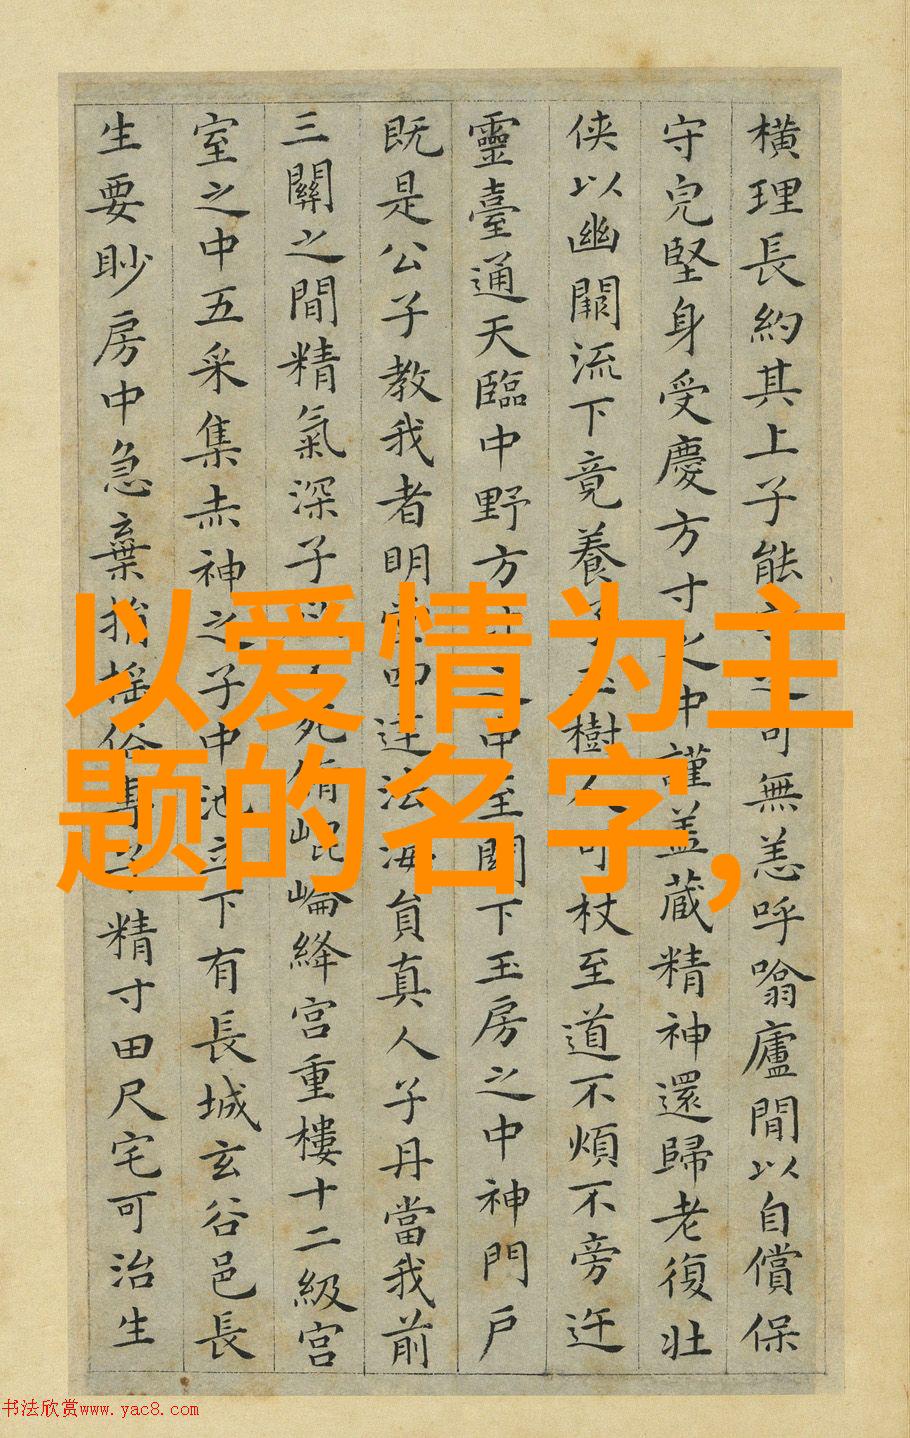 橫理長約其上子能
可無恙呼噏廬間以自償保
守兒堅身受慶方寸
中謹蓋藏精神還歸老復壯
俠以幽闕流下竟養
樹
杖至道不煩不旁迕
靈臺通天臨中野方
中至關下玉房之中神門戶
既是公子教我者明堂四達法海員真人子丹當我前
三關之間精氣深子
崑崙絳宮重樓十二級宮
室之中五采集赤神之子中池立下有長城玄谷邑長
生要眇房中急棄捐搖俗專子精寸田尺宅可治生
以爱情为主
题的名字,
书法欣赏www.yac8.com